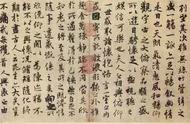 盛一觴一詠亦足以暢叙幽情
是日也天朗氣清惠風和暢仰
觀宇宙之大俯察品類之盛
所以遊目騁懷足以極視聽之
娛信可樂也夫人之相與俯仰
一世或取諸懷抱悟言一室之內
或因寄所託放浪形骸之外雖
趣舍萬殊靜躁不同當其欣
於所遇暫得於己快然自足不
知老之將至及其所之既惓情
隨事遷感慨係之矣向之所欣
俛仰之間以為陳迹猶不
能不以之興懷況脩短隨化終
期於盡古人云死生亦大矣豈
不痛哉每攬昔人興感之由